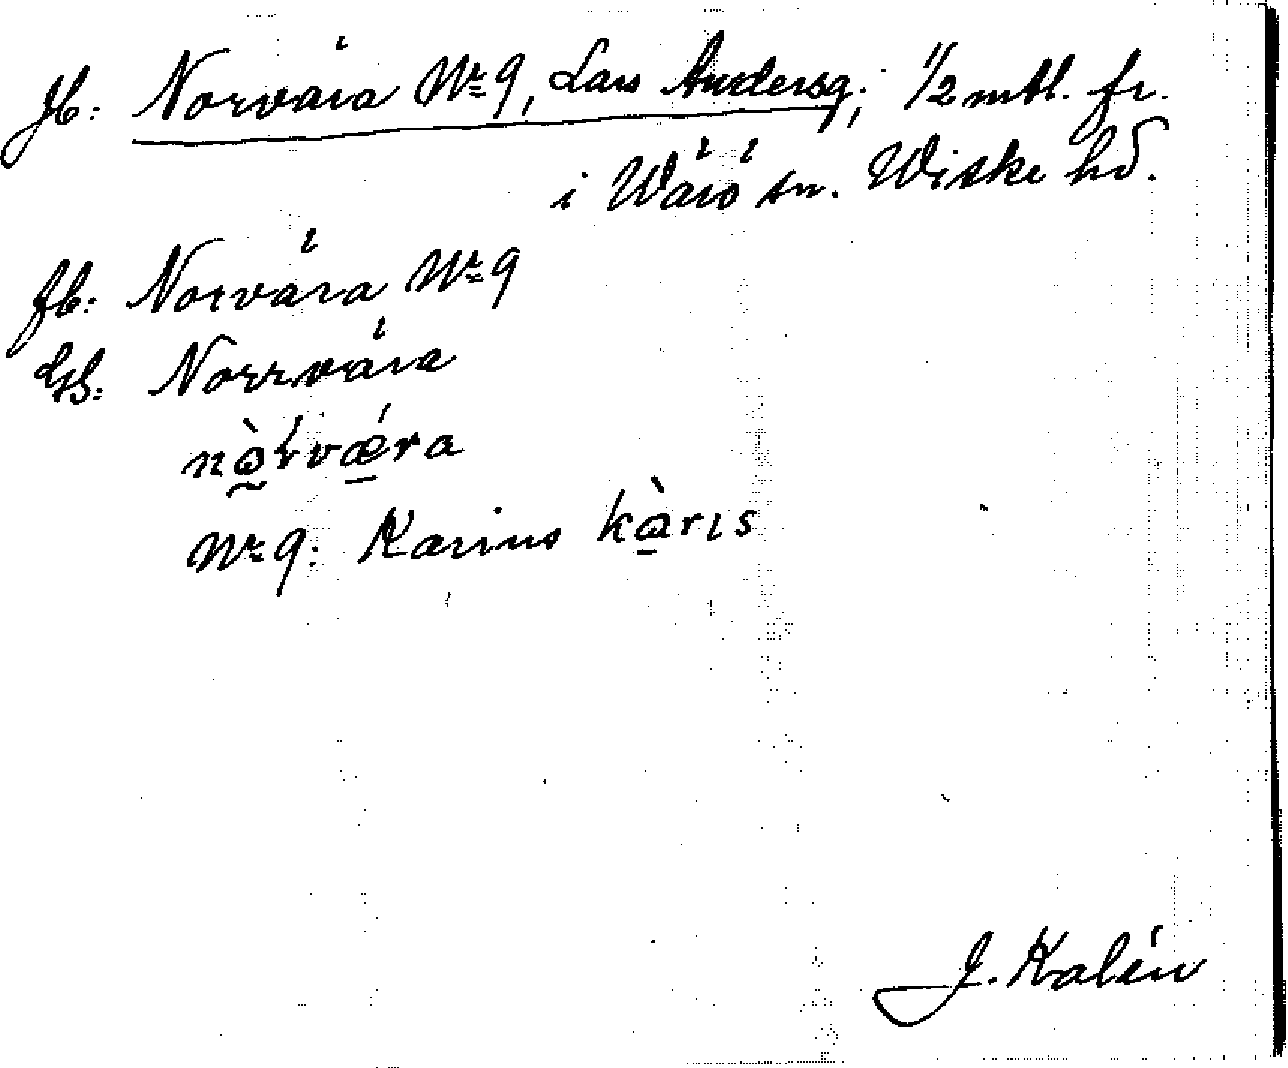 Jb: Norvära Nr 9, Lars Andersg.; 1/2 mtl. fr.
i Värö sn. Wiske hd.
fb: Norvära Nr 9
Gs: Norrvära
nə̀rvǽra
Nr 9: Karius kàrıs
J. Kalén